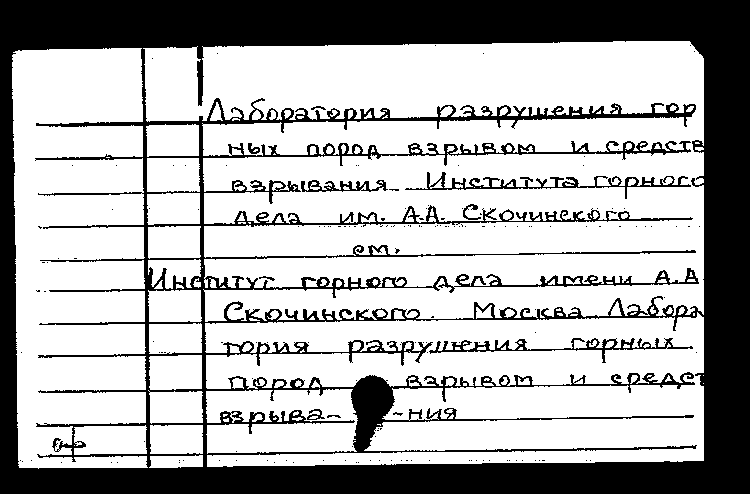 Лаборатория разрушения гор
ных пород взрывом и средств
взрывания Института горного
дела им. А.А. Скочинского
см.
Институт горного дела имени А.А
Скочинского. Москва Лабора
тория разрушения горных
пород взрывом и средст
взрыва- -ния